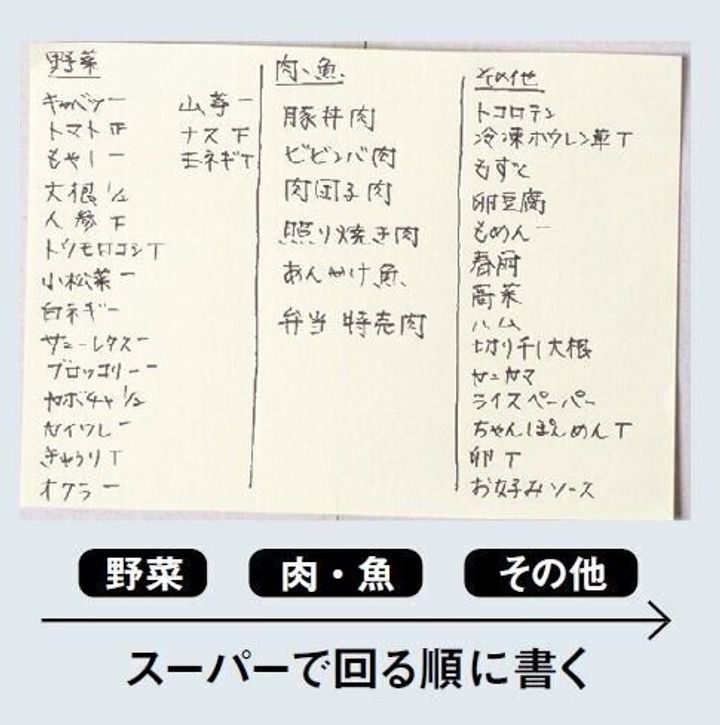 野菜
キャベツ一
トマト正
もやし一
大根½
人参下
トウモロコシT
小松菜一
白ネギ一
サニーレタス一
ブロッコリー一
カボチャ½
カイワレ一
きゅうりT
オクラ一
山芋一
ナス下
玉ネギT
肉、魚、
豚丼肉
ビビンバ肉
肉団子肉
照り焼き肉
あんかけ魚、
弁当 特売肉
その他
トコロテン
冷凍ホウレン草T
もずく
卵豆腐
もめん一
春雨
ハム
切り干し大根
カニカマ
ライスペーパー
ちゃんぽんめんT
卵T
お好みソース
野菜
肉・魚
その他
スーパーで回る順に書く